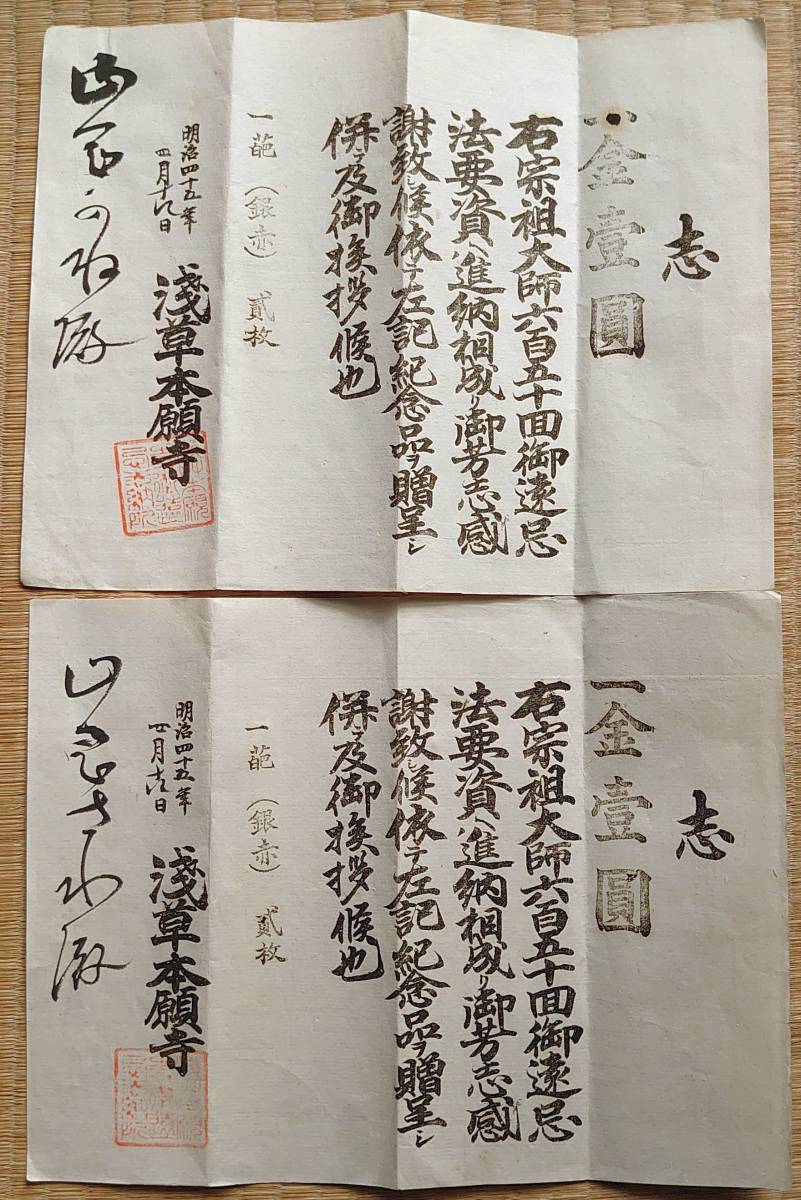 志
一金壹圓
右宗祖大師六百五十回御遠忌
法要資ヘ進納相成リ御芳志感
謝致シ候依テ左記紀念品ヲ贈呈シ
併テ及御挨拶候也
一葩(銀赤)貳枚
明治四十五年
四月十六日
淺草本願寺
殿
志
一金壹圓
右宗祖大師六百五十回御遠忌
法要資ヘ進納相成リ御芳志感
謝致シ候依テ左記紀念品ヲ贈呈シ
併テ及御挨拶候也
一葩(銀赤)貳枚
明治四十五年
四月十六日
淺草本願寺
殿